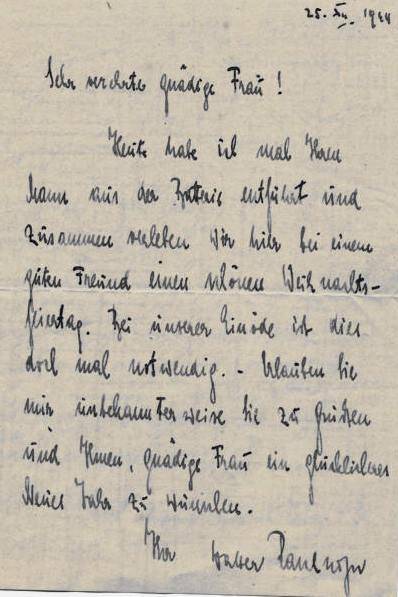 25. XII. 1944
Sehr verehrte gnädige Frau!
Heute habe ich mal Ihren
Mann aus der Batterie entführt und
zusammen verleben wir hier bei einem
guten Freund einen schönen Weihnachts-
feiertag. Bei unserer Einöde ist dies
doch mal notwendig. - Erlauben Sie
mir unbekannterweise Sie zu grüßen
und Ihnen, gnädige Frau ein glückliches
Neues Jahr zu wünschen.
Ihr Walter